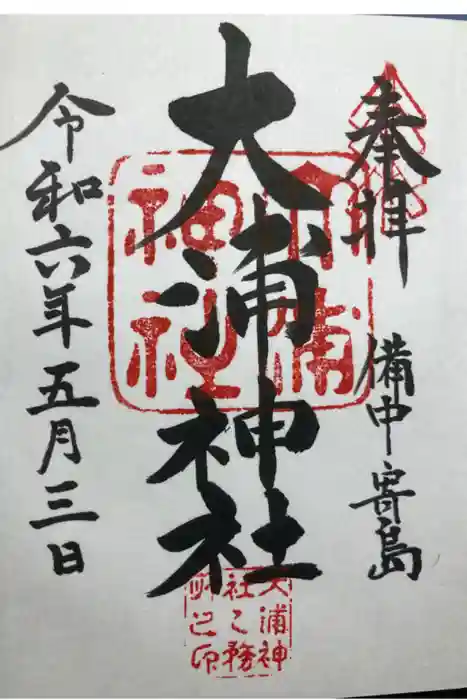 奉拝
備中寄島
大浦神社
大浦神社
令和六年五月三日
大浦神
社之務
所之印